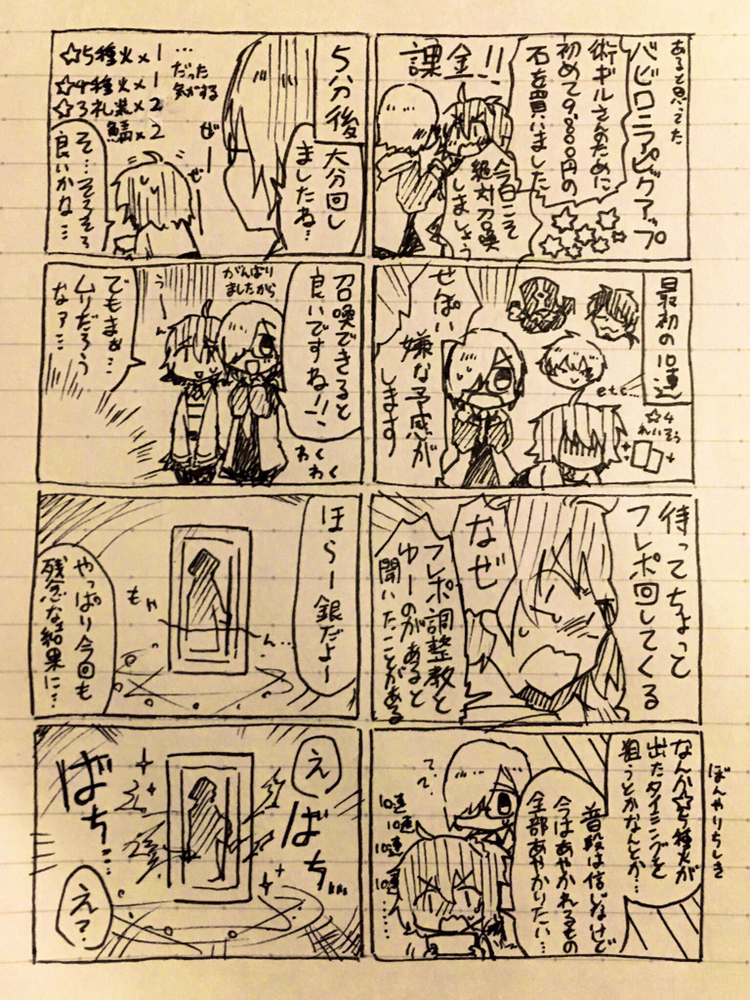 あると思ってた
バビロニアピックアップ
術ギルさんのために
初めて9,800円の
石を買いました
課金!!
今日こそ
絶対召喚
しましょう
最初の10連
etc…
☆4
れいそう
せんぱい
嫌な予感が
します
待ってちょっと
フレポ回してくる
なぜ
フレポ調整教と
ゆーのがあると
聞いたことがある
ぼんやりちしき
なんか☆5種火が
出たタイミングを
狙うとかなんとか…
普段は信じないけど
今はあやかれるもの
全部あやかりたい…
10連
10連
10連
10連
5分後
大分回し
ましたね…
…
だった
気がする
☆5種火×1
☆4種火×1
☆3礼装×2
鯖×2
ぜー
ぜー
そ…そろそろ
良いかな…
召喚できると
良いですね!!
がんばり
ましたから
わくわく
うーん
でもまぁ…
ムリだろう
なァ…
ほらー銀だよ〜
もやーん…
やっぱり今回も
残念な結果に…
え
ばち…
ばち…
え?